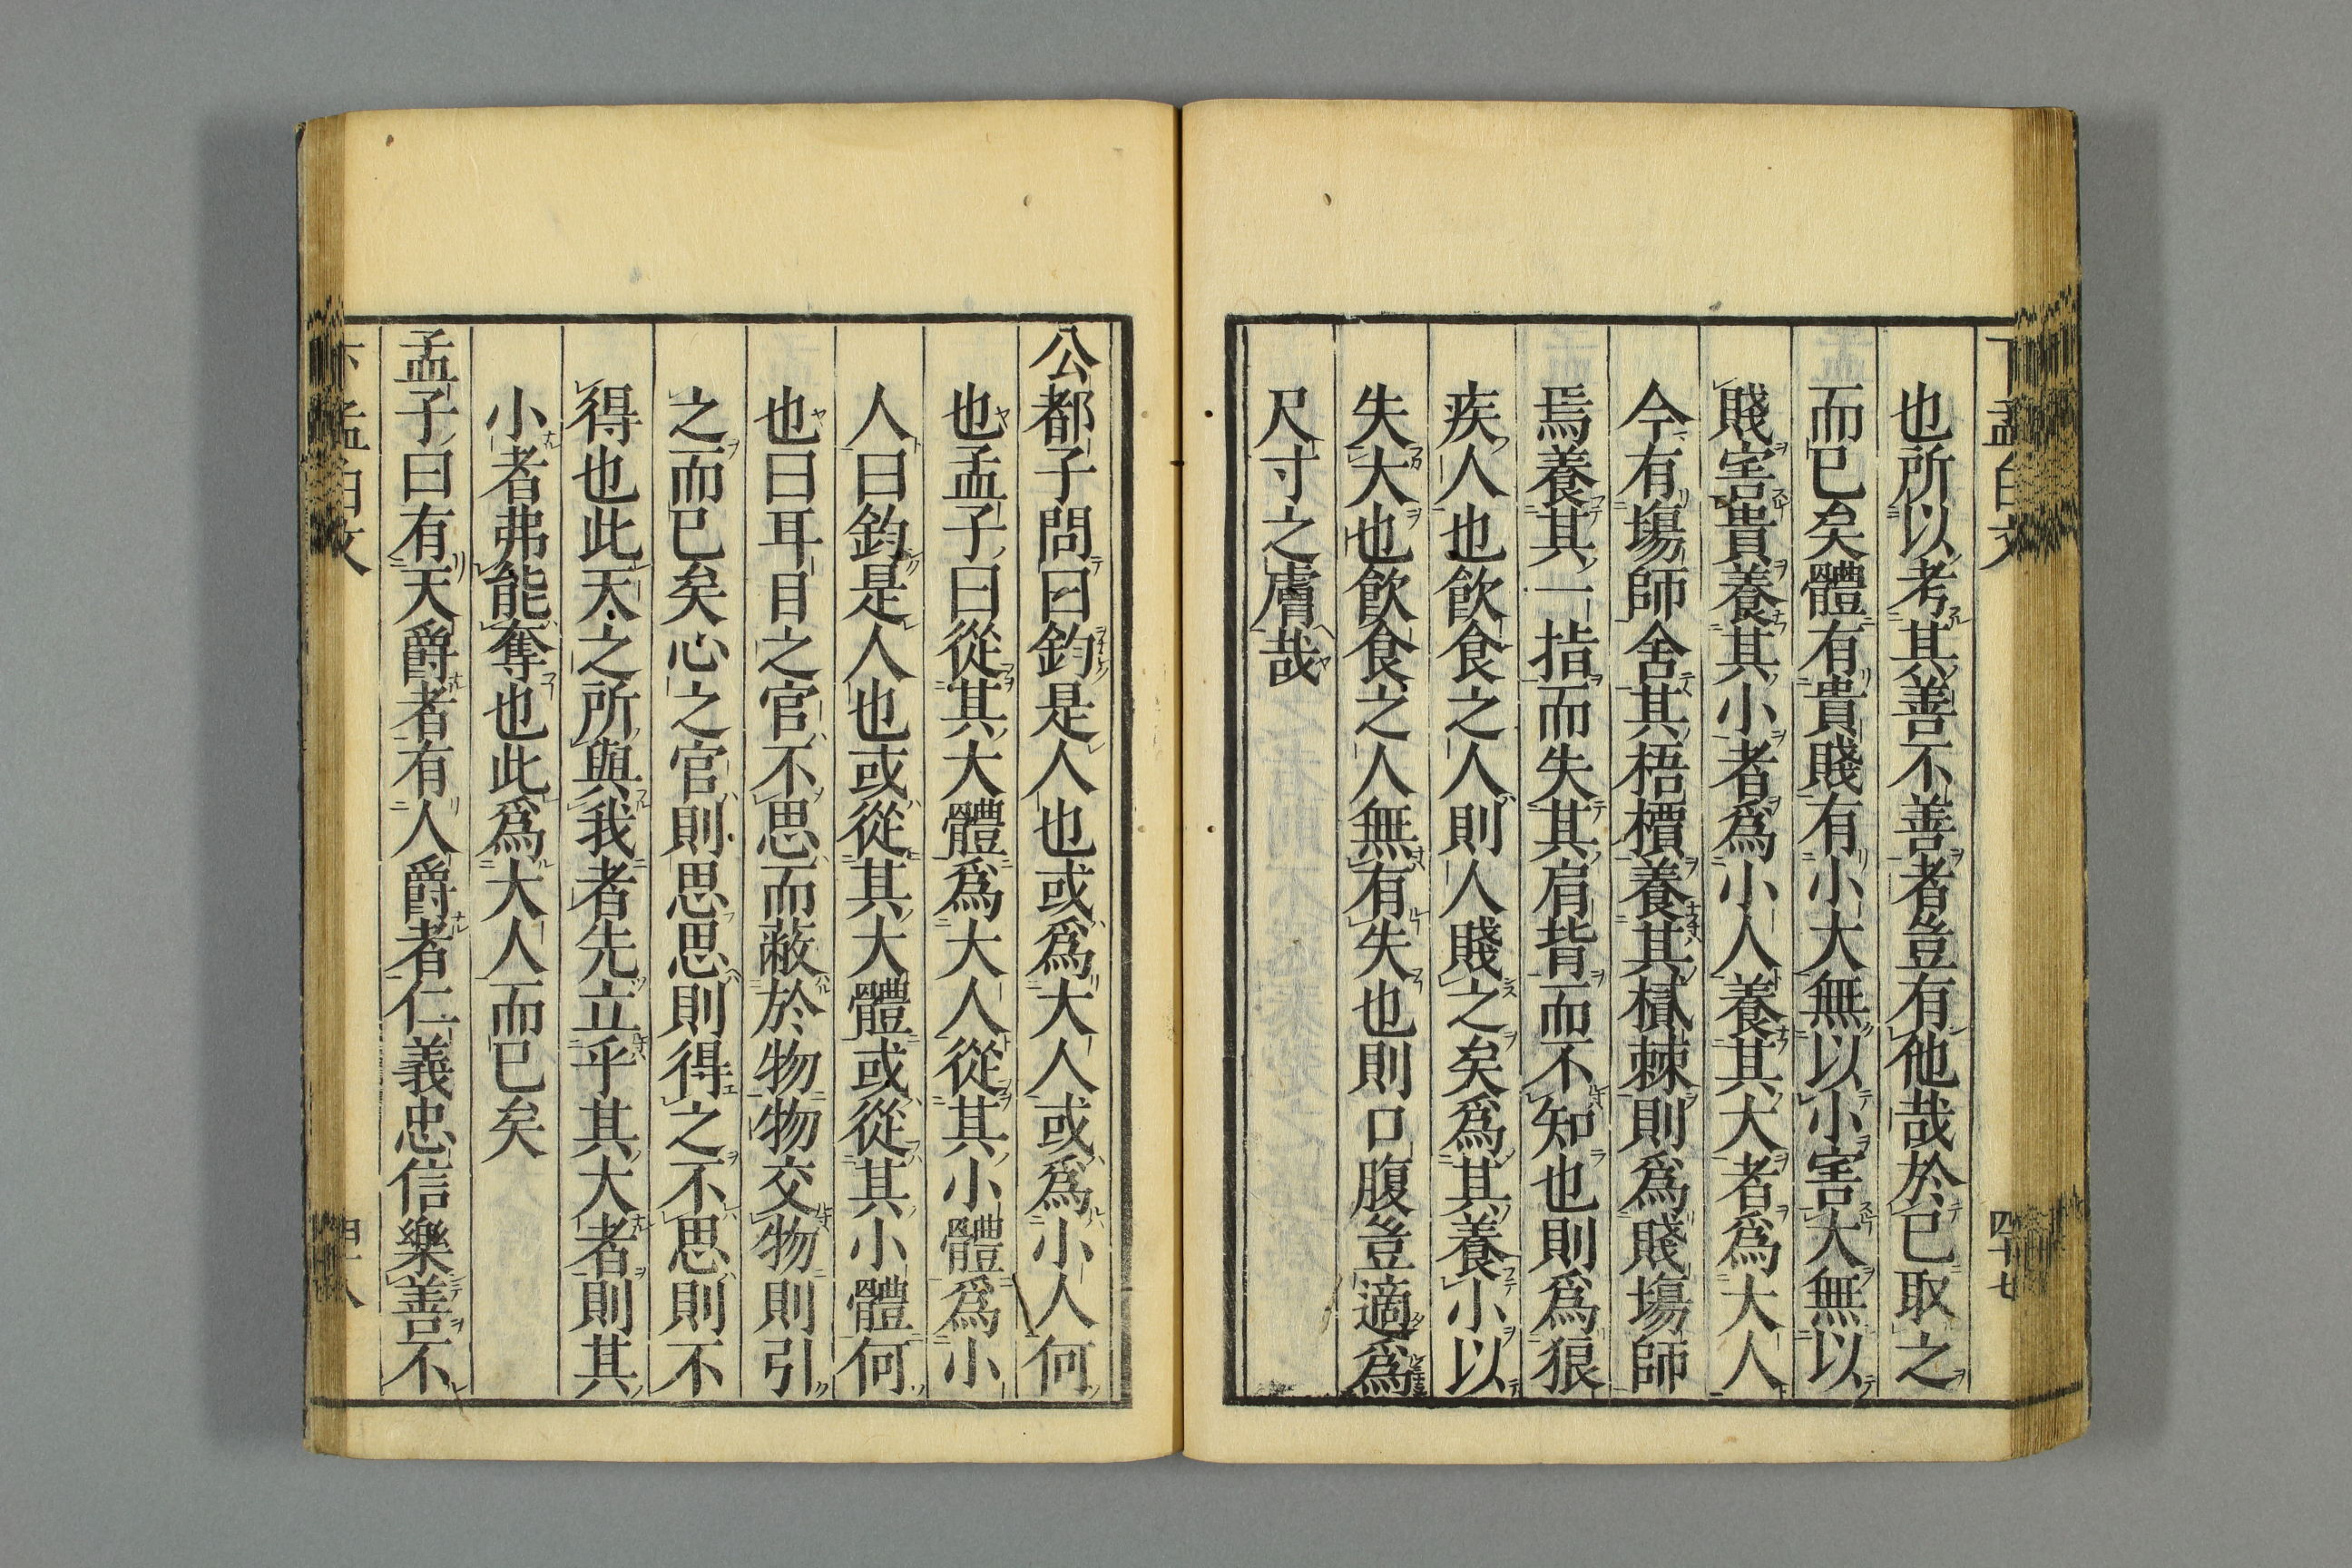 也所以考其善不善者豈有他哉於已取之
而已矣體有貴賤有小大無以小害大無以
賤害貴養其小者爲小人養其大者爲大人
今有塲師舍其梧檟養其樲棘則爲賤塲師
焉養其一指而失其肩背而不知也則爲狼
疾人也飮食之人則人賤之矣爲其養小以
失大也飮食之人無有失也則口腹豈適爲
尺寸之膚哉
公都子問曰鈞是人也或爲大人或爲小人何
也孟子曰從其大體爲大人從其小體爲小
人曰鈞是人也或從其大體或從其小體何
也曰耳目之官不思而蔽於物物交物則引
之而已矣心之官則思思則得之不思則不
得也此天之所與我者先立乎其大者則其
小者弗能奪也此爲大人而已矣
孟子曰有天爵者有人爵者仁義忠信樂善不